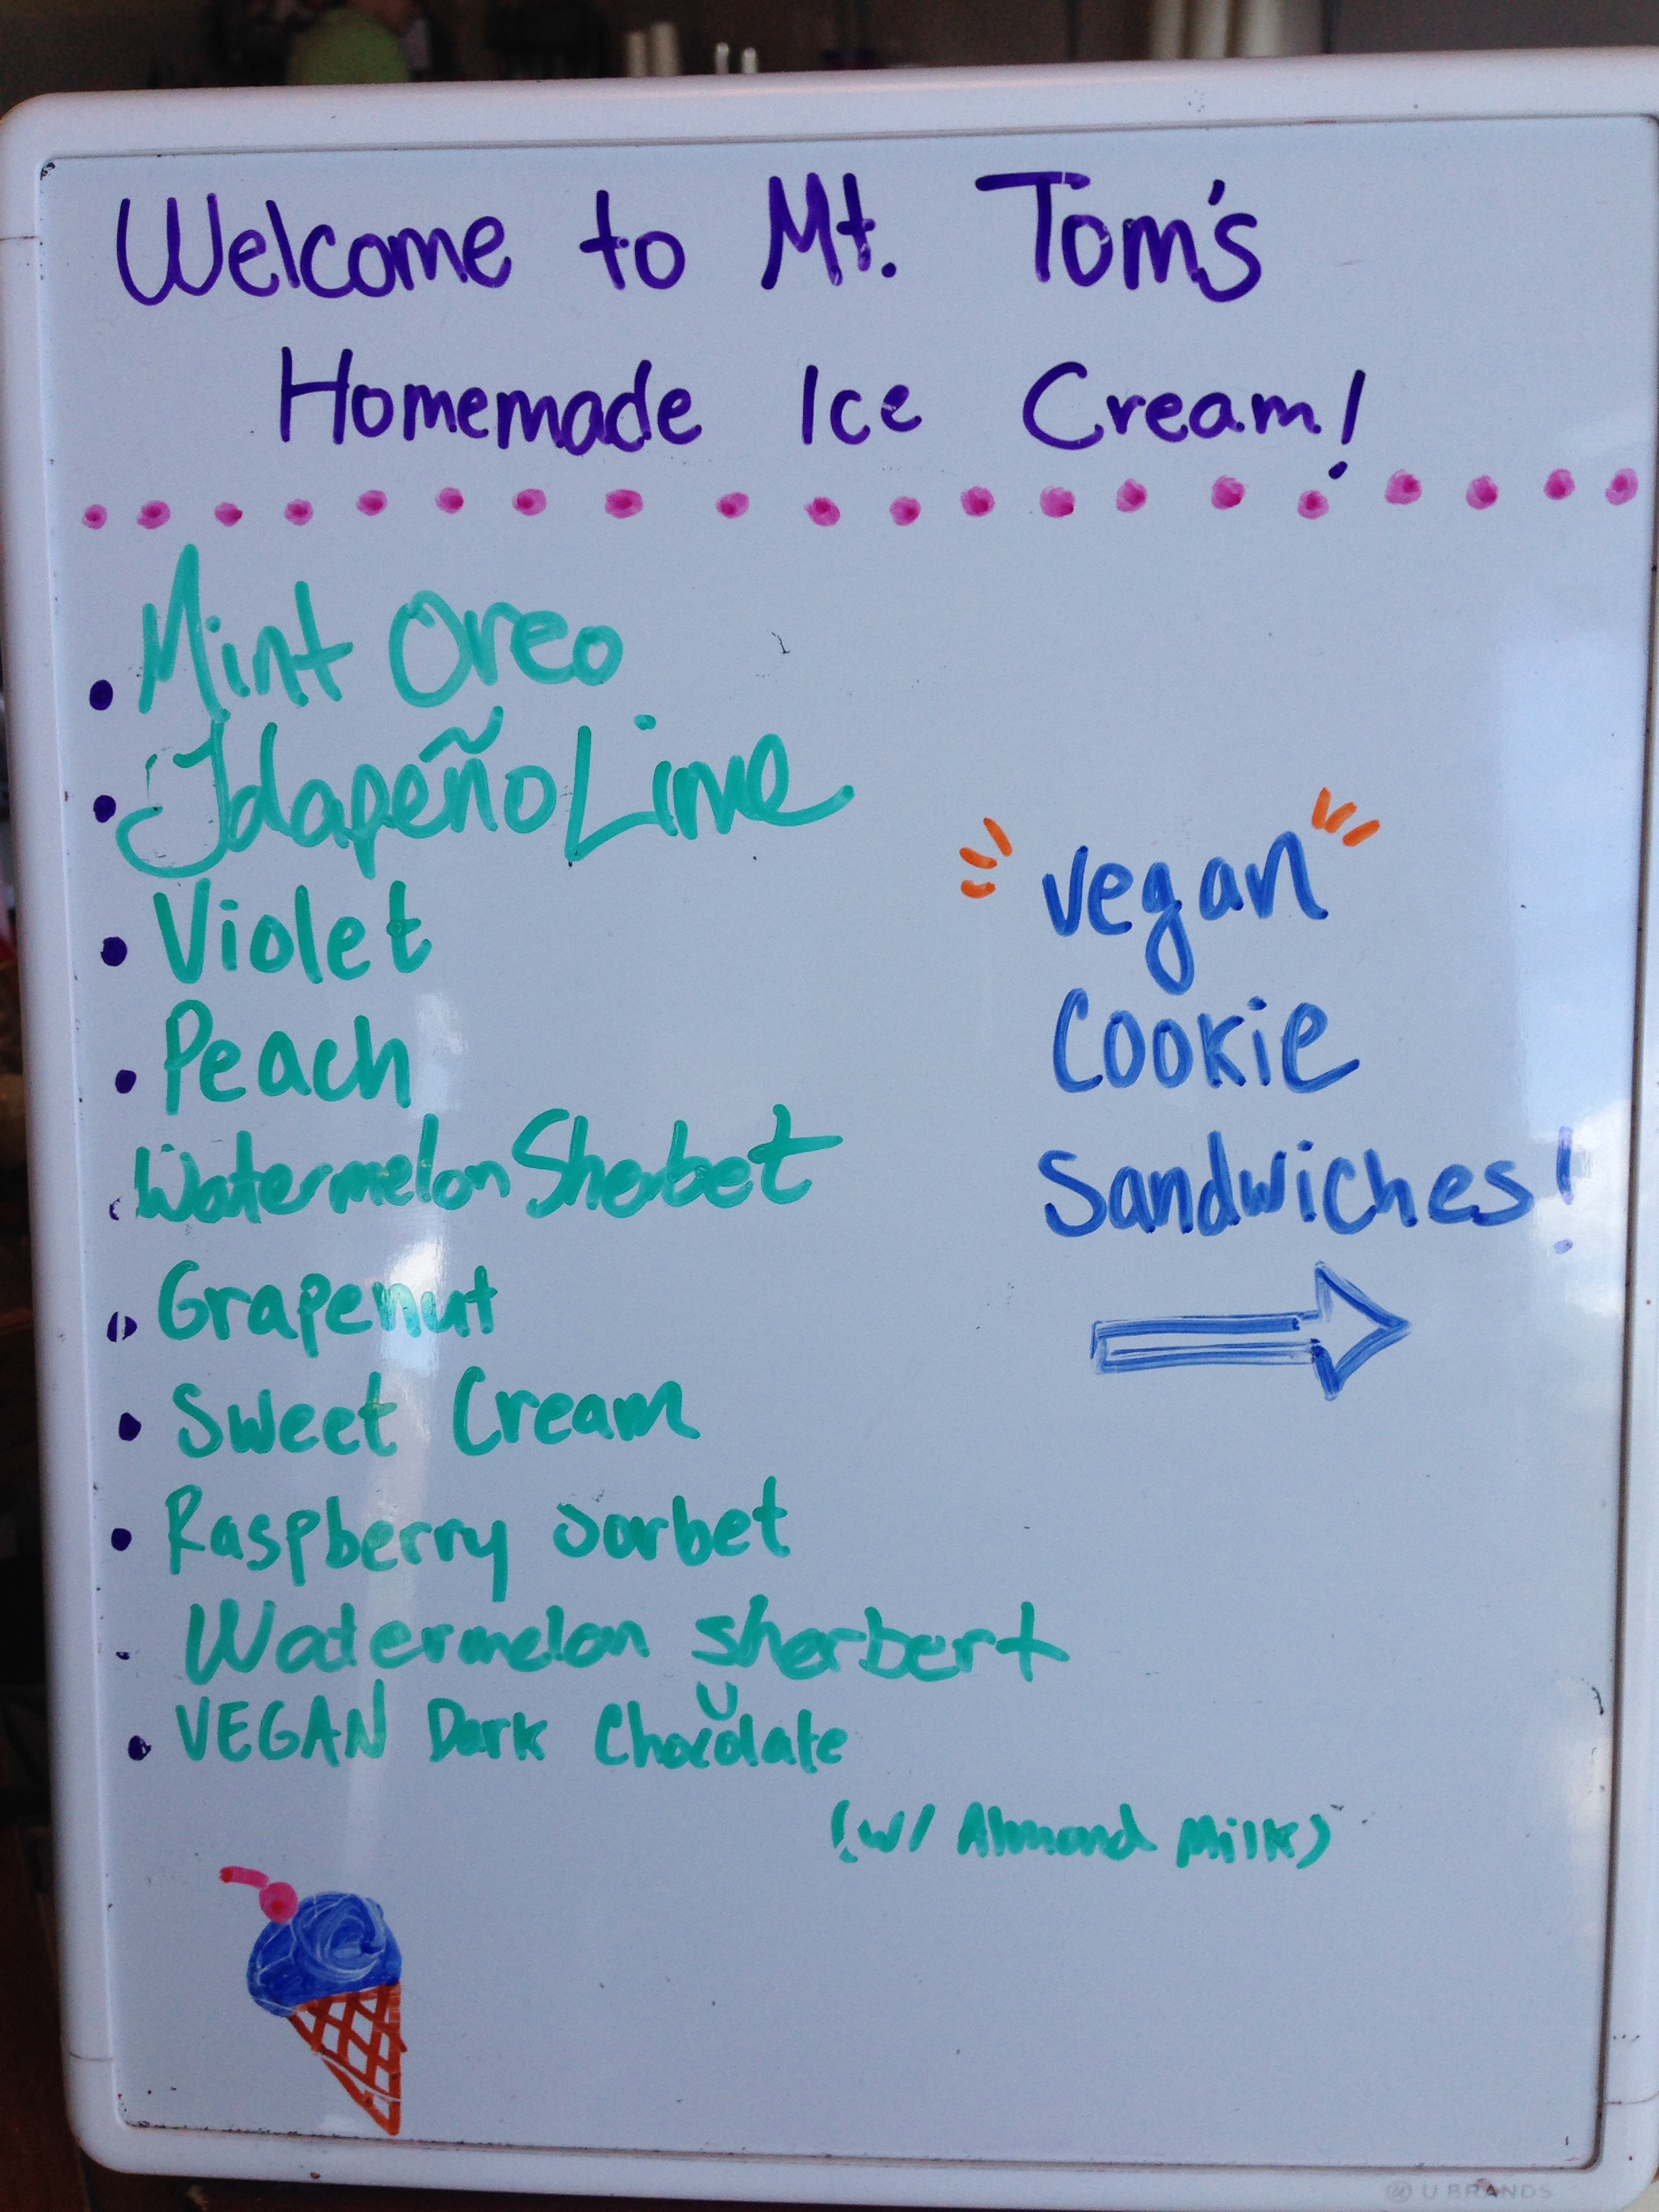 Welcome to Mt. Tom's
Homemade Ice Cream!
• Mint Oreo
• Jalapeño Lime
• Violet
• Peach
• Watermelon Sherbet
• Grapenut
• Sweet Cream
• Raspberry Sorbet
• Watermelon sherbert
• VEGAN Dark Chocolate
(w/ Almond Milk)
vegan
Cookie
Sandwiches!
U BRANDS